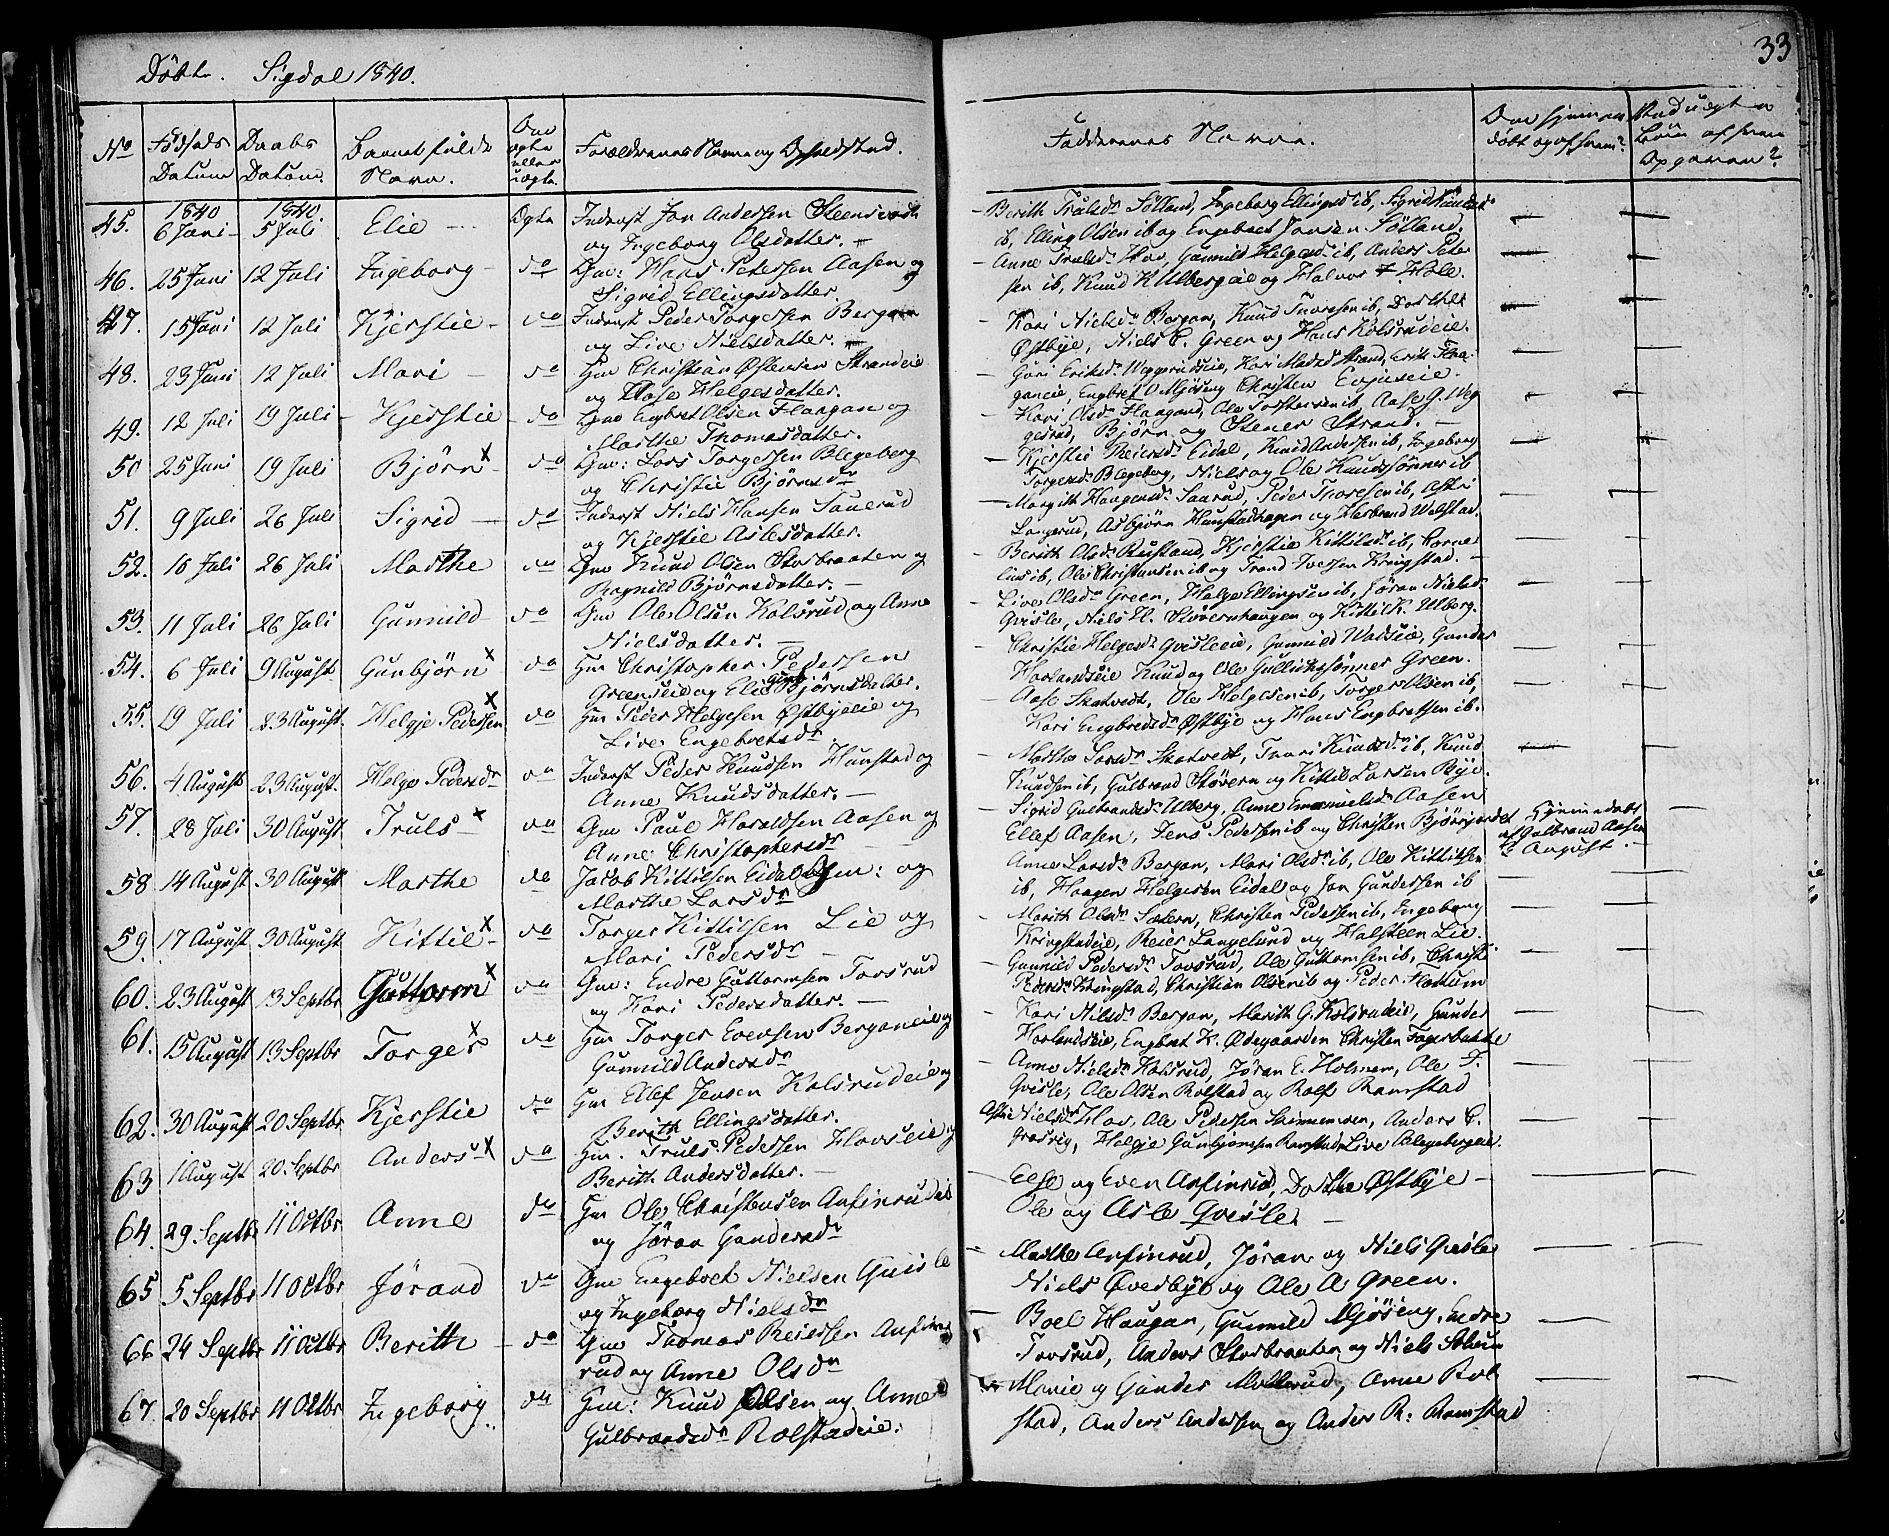 33
Döbte. Sigdal 1840.
No Födsels Datum Daabs Datum. Barnets fulde Navn. Om ægte eller uægte. Forældrenes Navne og Opholdsted.
Faddernes Navne. Om hjemmedöbt og af hvem?
45. 1840 6 Juni 1840 5 Juli Elie Ægte Inderst Jon Andersen Steensrud
og Ingeborg Olsdatter.
Berith Trulsdr Sølland, Ingeborg Ellingsd ib, Sigrid
ib, Elling Olsen ib og Engebret Jonsen Sølland.
46. 25 Juni 12 Juli Ingeborg do Gm: Hans Petersen Aasen og
Sigrid Ellingsdatter.
Anne Trulsdr Hov, Gunnild Helgesdr ib, Anders Peter
sen ib, Knud K Ulbergeie og Halvor Hole.
47. 15 Juni 12 Juli Kjerstie do Inderst Peder Torgersen Bergan
og Live Nielsdatter.
Kari Nielsdr Bergan, Knud Thoresen ib, Dorthe
Østbye, Niels C. Green og Hans Kolsrudeie.
48. 23 Juni 12 Juli Mari do Gm Christian Østensen Strandeie
og Aase Helgesdatter.
Guri Eriksdr Weggerudseie, Kari Madsd Strand, Erik Flaa
ganeie, Engbret O Mjøseng Christen Evjuseie.
49. 12 Juli 19 Juli Kjerstie do Gm Engbret Olsen Flaagan og
Marthe Thomasdatter.
Kari Olsdr Flaagand, Ole Torstensen ib, Aase G. Weg
gesrud, Bjørn og Stener Strand.
50 25 Juni 19 Juli Bjørn x do Gm: Lars Torgersen Blegeberg
og Christie Bjørnsdr
Kjerstie Reiersdr Eidal, Knud Andersen ib, Ingeborg
Torgersdr Blegeberg, Niels og Ole Knudssønner ib
51. 9 Juli 26 Juli Sigrid do Inderst Niels Hansen Sauerud
og Kjerstie Aslesdatter.
Margith Haagensdr Saurud, Peder Thoresen ib, Astri
Langerud, Asbjørn Hunstadhagen og Herbrand Wolstad.
52. 16 Juli 26 Juli Marthe do Gm Knud Olsen Storbraaten og
Ragnild Bjørnsdatter.
Berith Olsdr Rustand, Kjerstie Kittilsdr ib, Corne
lius ib, Ole Christiansen ib og Trond Iversen Kringstad.
53. 11 Juli 26 Juli Gunnild do Gm Ole Olsen Kolsrud og Anne
Nielsdatter.
Live Olsdr Green, Helge Ellingsen ib, Jøran Nielsd
Qvisle, Niels H. Stovernhaugen og Kittil K. Ulberg.
54. 6 Juli 9 August Gunbjørn x do Gm Christopher Pedersen
Greenseie og Elie Gunbjørnsdatter.
Christie Helgesdr Qvisleeie, Gunnild Wadseie, Gunder
Horlandseie Knud og Ole Gulliksønner Green.
55. 19 Juli 23 August. Helgje Pedersen x do Gm Peder Helgesen Østbyeeie og
Live Engebretsdr
Aase Skatvedt, Ole Helgesen ib, Torger Olsen ib,
Kari Engbretsdr Østbye og Hans Engbretsen ib.
56. 4 August 23 August. Helge Pedersdr do Inderst Peder Knudsen Hunstad og
Anne Knudsdatter.
Marthe Larsdr Skatvedt, Turi Knudsdr ib, Knud
Knudsen ib, Gulbrand Støvern og Kittil Larsen Bye.
57. 28 Juli 30 August Truls x do Gm Paul Haraldsen Aasen og
Anne Christophersdr
Sigrid Gulbrandsdr Ulberg, Anne Emanuelsdr Aasen
Ellef Aasen, Jens Pedersen ib og Christen Bjørnjordet
Hjemmedøbt
af Gulbrand Aasen
August.
58 14 August 30 August Marthe do Jacob Kittilsen Eidal Gm: og
Marthe Larsdr
Anne Larsdr Bergan, Mari Olsdr ib, Ole Kittilsen
ib, Haagen Helgesen Eidal og Jon Gundersen ib
59. 17 August 30 August Kittil x do Torger Kittilsen Lie og
Mari Pedersdr
Marith Olsdr Sætern, Christen Pedersen ib, Ingeborg
Kringstadeie, Reier Langelund og Halsteen Lie.
60. 23 August 13 Septbr Guttorm x do Gm: Endre Guttormsen Tovsrud
og Kari Pedersdatter.
Gunnild Pedersdr Tovsrud, Ole Guttormsen ib, Christi
Pedersdr Kringstad, Christian Olsen ib og Peder Hattum
61. 15 August 13 Septbr Torger x do Gm Torger Eversen Berganeie og
Gunnild Andersdr
Kari Nilsdr Bergan, Marith G. Kolsrudeie, Gunder
Horlandseie, Engbret K. Ødegaarden Christen Fagerbakke
62. 30 August 20 Septbr Kjerstie do Gm Ellef Jensen Kolsrudeie og
Berith Ellingsdatter.
Anne Nielsdr Kolsrud, Jøran E. Holmen, Ole T.
Qvisle, Ole Olsen Rolstad og Rolf Ramstad
63 1 August 20. Septbr Anders x do Gm. Truls Pedersen Hovseie og
Berith Andersdatter.
Astrie Nielsdr Hov, Ole Pedersen Skinnemoen, Anders C.
Grøsvig, Helgje Gunbjørnsen Ramstad, Live Blegebergeie.
64. 29 Septbr 11 Octbr Anne do Gm Ole Christensen Anfinrudeie
og Jøran Gundersdr
Else og Even Anfinrud, Dorthe Østbye
Ole og Asle Qvisle.
65 5 Septbr 11 Octbr Jørand do Gm Engebret Nielsen Quisle
og Ingeborg Nielsdr
Marthe Anfinrud, Jøran og Niels Qvisle
Niels Øvedbye og Ole A Green.
66 24 Septbr 11 Octbr Berith do Gm Thomas Reiersen Anfin
rud og Anne Olsdr
Boel Haugan, Gunnild Mjøseng, Endre
Tovsrud, Anders Storbraaten og Niels
67. 20 Septbr 11 Octbr Ingeborg do Gm: Knud Olsen og Anne
Gulbrandsdr Rolstadeie.
Marie og Gunder Mollerud, Anne Rol
stad, Anders Andersen og Anders R: Ramstad